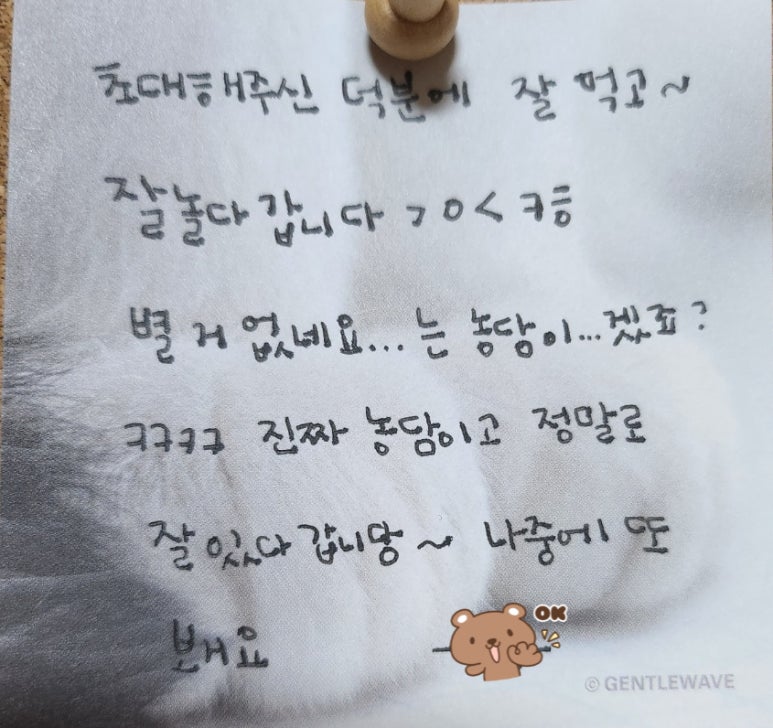 초대해주신 덕분에 잘 먹고~
잘놀다 갑니다 >o< ㅋㅎ
별 거 없네요...는 농담이...겠죠?
ㅋㅋㅋㅋ 진짜 농담이고 정말로
잘 있다 갑니당~ 나중에 또
봬요
OK
© GENTLEWAVE